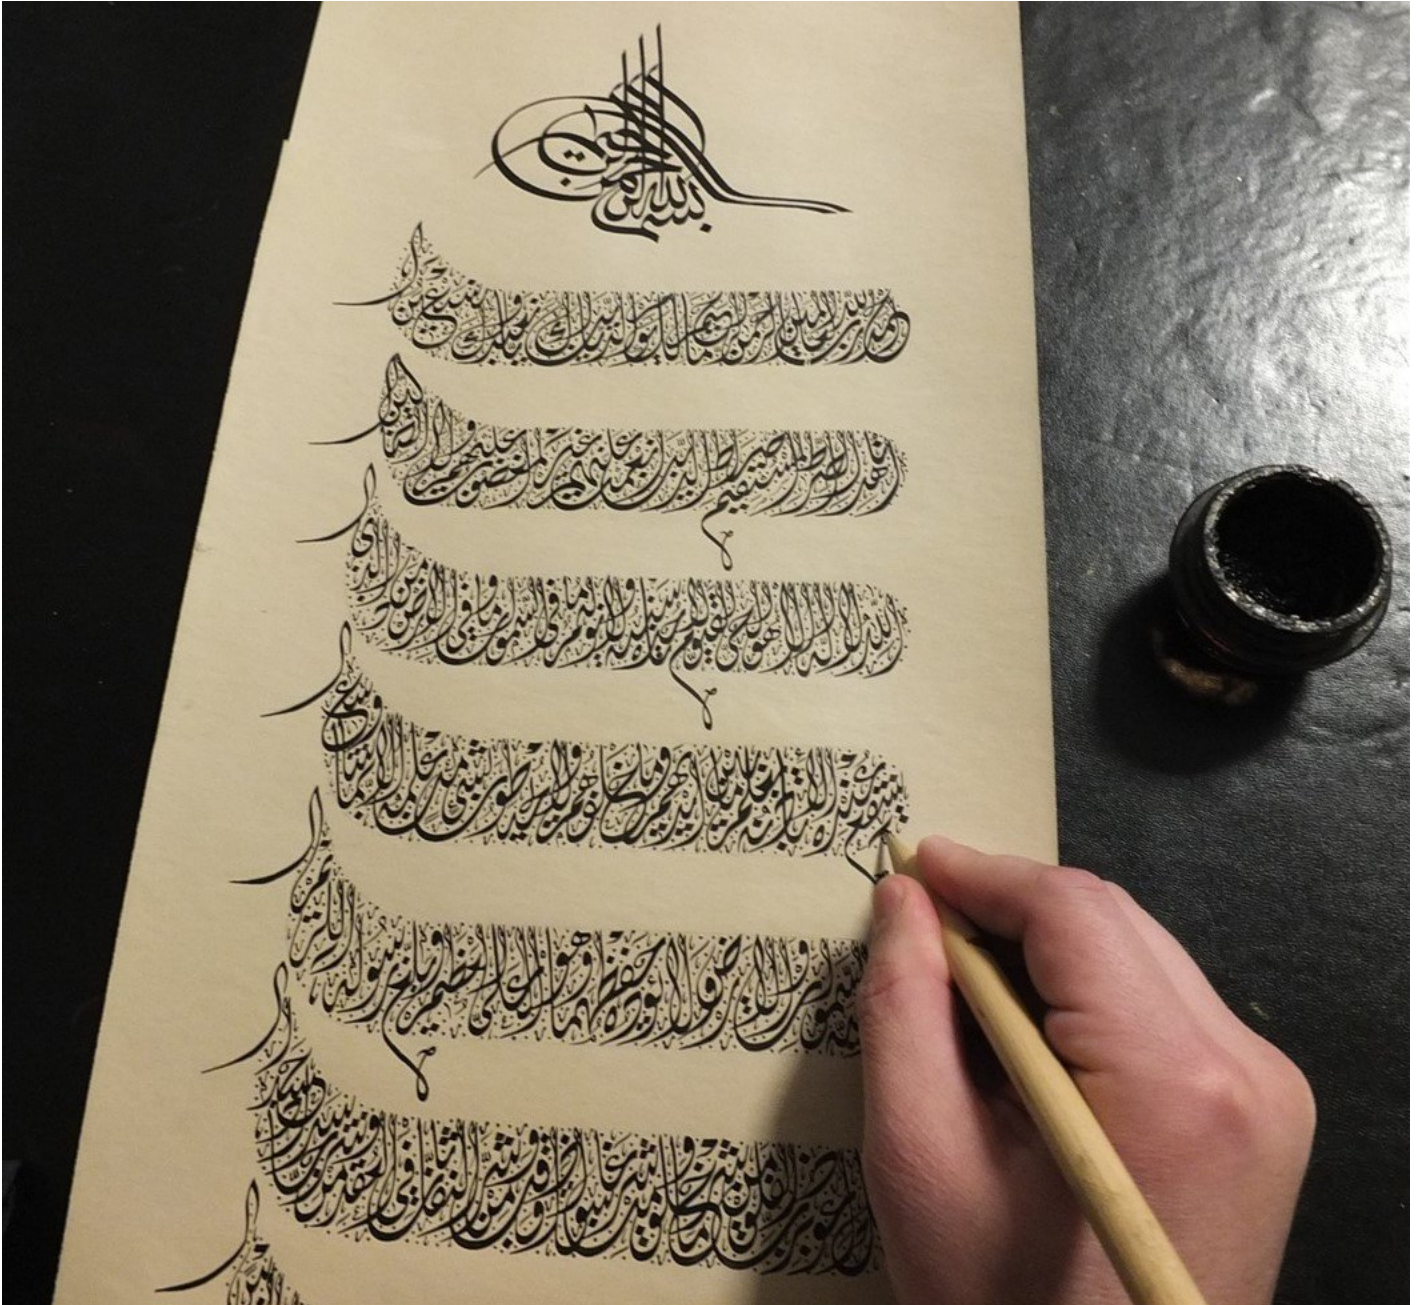 بسم الله الرحمن الرحيم
الحمد لله رب العالمين الرحمن الرحيم مالك يوم الدين إياك نعبد وإياك نستعين
اهدنا الصراط المستقيم صراط الذين أنعمت عليهم غير المغضوب عليهم ولا الضالين
الله لا إله إلا هو الحي القيوم لا تأخذه سنة ولا نوم له ما في السموات وما في الأرض من ذا الذي
يشفع عنده إلا بإذنه يعلم ما بين أيديهم وما خلفهم ولا يحيطون بشيء من علمه إلا بما شاء وسع
السموات والأرض ولا يؤده حفظهما وهو العلي العظيم
أعوذ برب الفلق من شر ما خلق ومن شر غاسق إذا وقب ومن شر النفاثات في العقد ومن شر حاسد